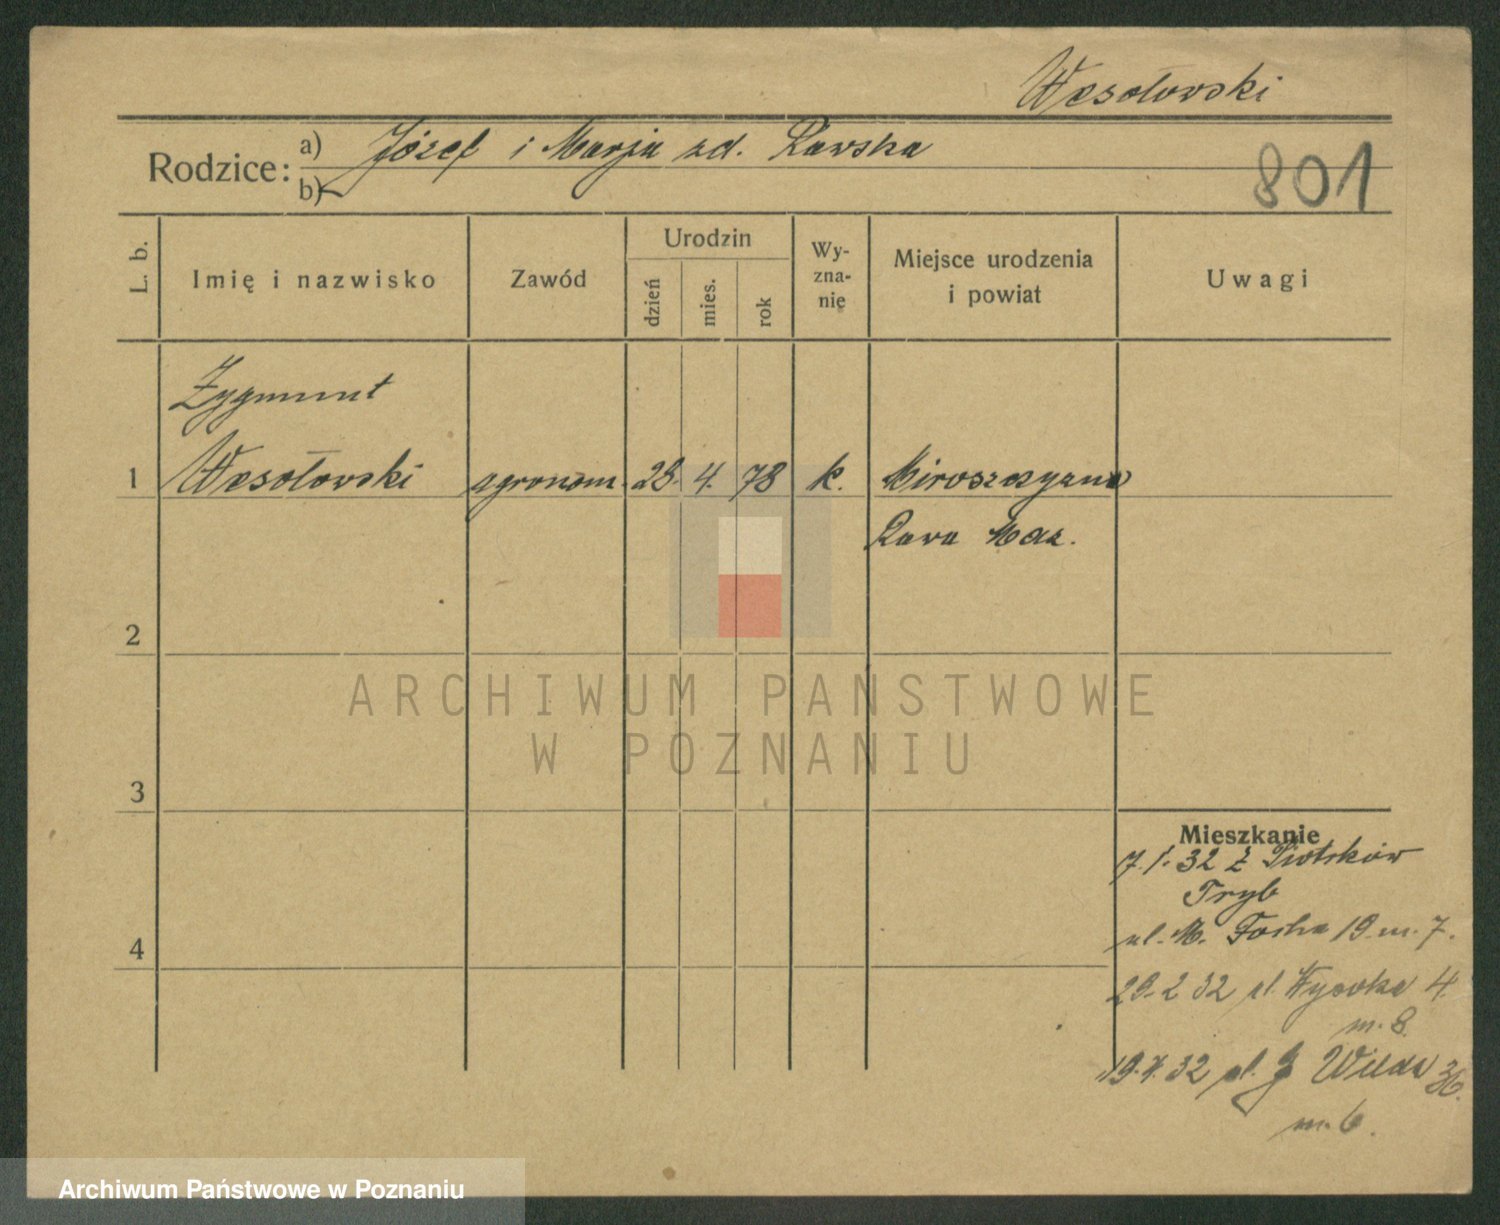 Wesołowski
Rodzice: a) Józef i Marja zd. Rawska
b)
801
L. b.
Imię i nazwisko
Zawód
Urodzin
dzień
mies.
rok
Wy-
zna-
nie
Miejsce urodzenia
i powiat
Uwagi
Zygmunt
1 Wesołowski agronom. 28. 4. 78 k. Miroszczyzna
Rawa Maz.
2
3
4
Mieszkanie
7.1.32 z Piotrków
Tryb
ul. M. Focha 19 m. 7.
29.2 32 ul. Wysoka 4.
m. 8.
19.X.32 ul. G Wilda 36.
m. 6.
ARCHIWUM PAŃSTWOWE
W POZNANIU
Archiwum Państwowe w Poznaniu